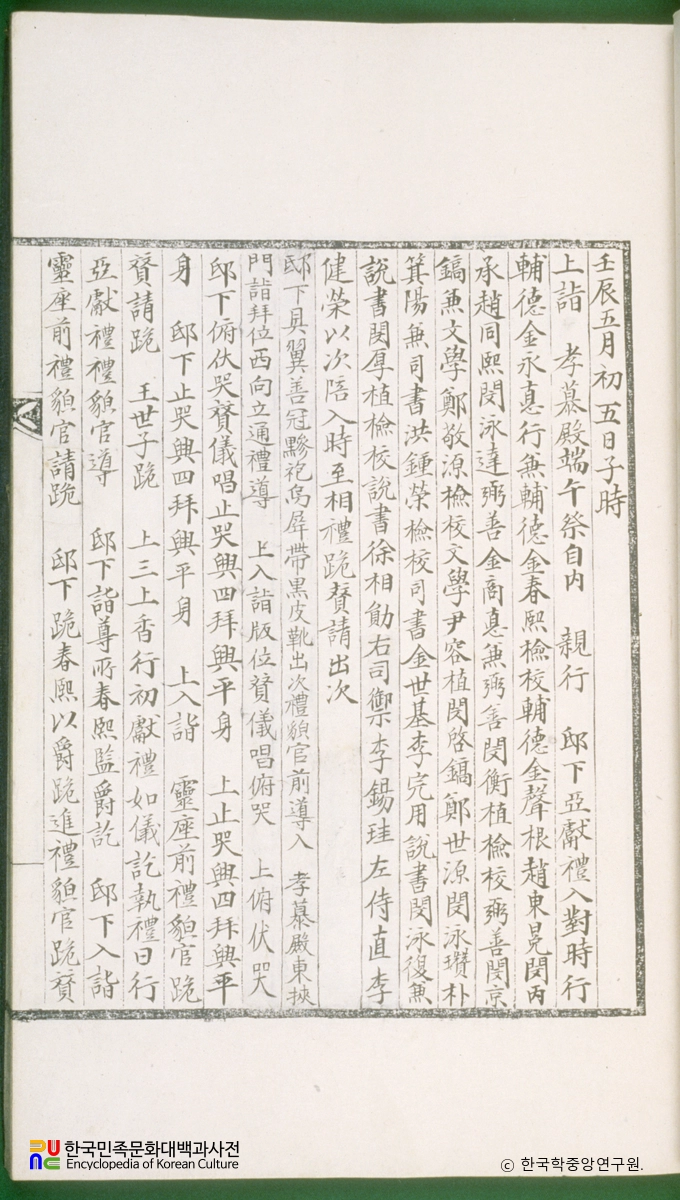 壬辰五月初五日子時
上詣 孝慕殿端午祭自內 親行 邸下亞獻禮入對時行
輔德金永悳行兼輔德金春熙檢校輔德金聲根趙東冕閔丙
承趙同熙閔泳達弼善金商悳兼弼善閔衡植檢校弼善閔京
鎬兼文學鄭敬源檢校文學尹容植閔啓鎬鄭世源閔泳瓚朴
箕陽兼司書洪鍾榮檢校司書金世基李完用說書閔泳復兼
說書閔厚植檢校說書徐相勛右司禦李錫珪左侍直李
健榮以次陪入時至相禮跪贊請出次
邸下具翼善冠黲袍烏犀帶黑皮靴出次禮貌官前導入 孝慕殿東挾
門詣拜位西向立通禮導 上入詣版位贊儀唱俯哭 上俯伏哭
邸下俯伏哭贊儀唱止哭興四拜興平身 上止哭興四拜興平
身 邸下止哭興四拜興平身 上入詣 靈座前禮貌官跪
贊請跪 王世子跪 上三上香行初獻禮如儀訖執禮曰行
亞獻禮禮貌官導 邸下詣尊所春熙監爵訖 邸下入詣
靈座前禮貌官請跪 邸下跪春熙以爵跪進禮貌官跪贊
한국민족문화대백과사전
Encyclopedia of Korean Culture
© 한국학중앙연구원.